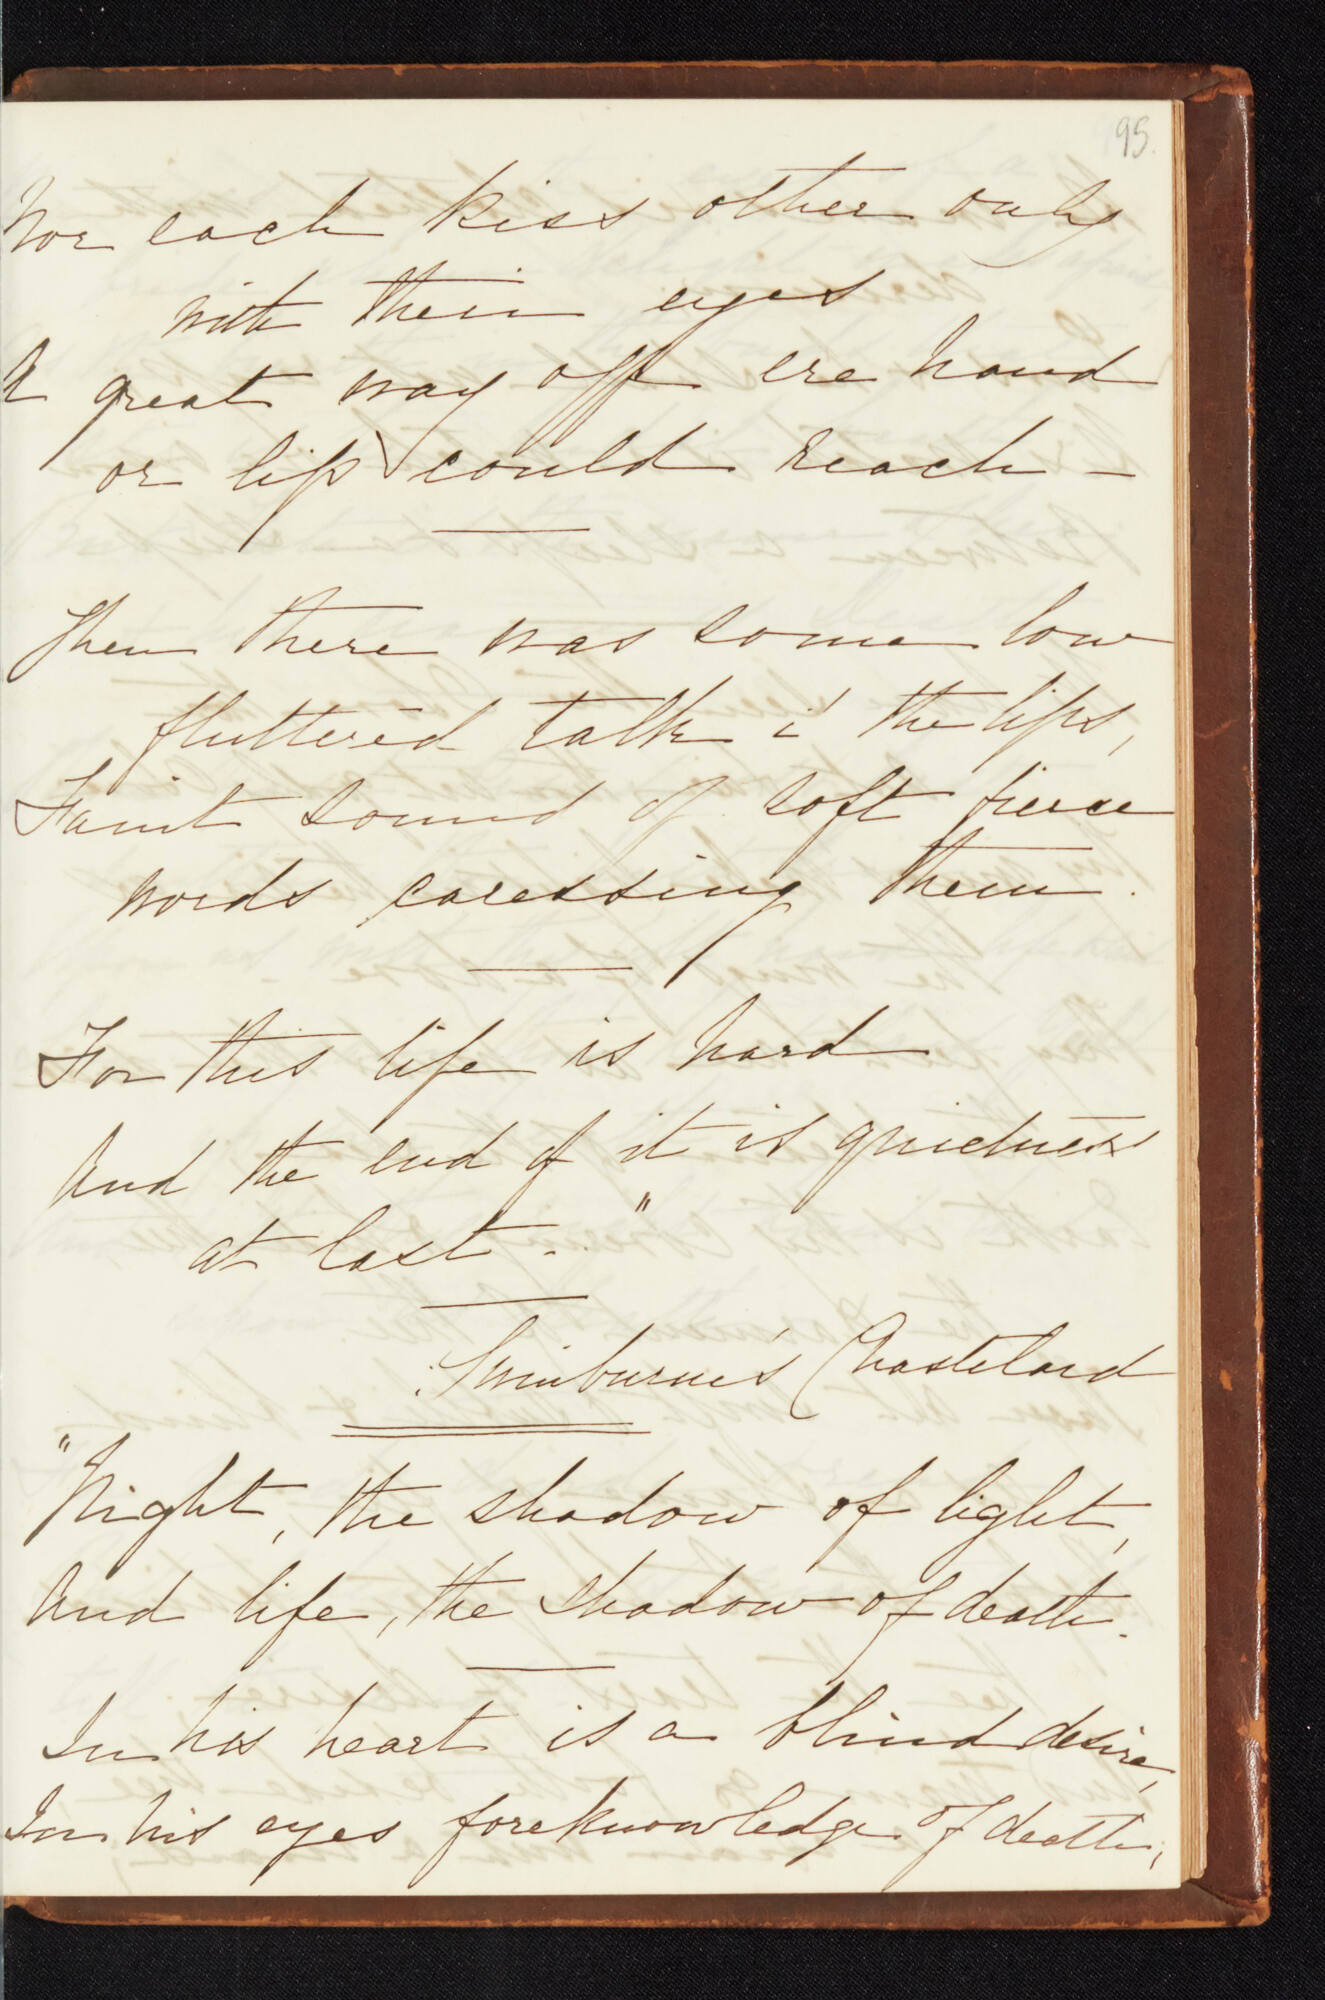 95.
Nor each kiss other only
with their eyes
A great way off ere hand
or lip could reach –
Then there was some low
fluttered talk i' the lips,
Faint sound of soft fierce
words caressing them.
For this life is hard
And the end of it is quietness
at last. "
Swinburne's Chastelard
"Night, the shadow of light,
And life, the shadow of death.
In his heart is a blind desire,
In his eyes foreknowledge of death;